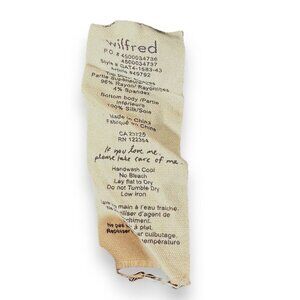 wilfred
P.O # 4500034736
4500034737
Style # GAT4-1583-43
Article #49792
96% Rayon/ Rayonnes
4% Spandex
Bottom body /Partie
Inférieure
100% Silk/Soie
Made in China
Fabriqué en China
CA 23125
RN 122354
If you love me,
please take care of me
Handwash Cool
No Bleach
Lay flat to Dry
Do not Tumble Dry
Low Iron
main à l'eau fraîche.
iliser d'agent de
chiment.
à plat.
Ne pas
ar culbutage.
Repasser
température